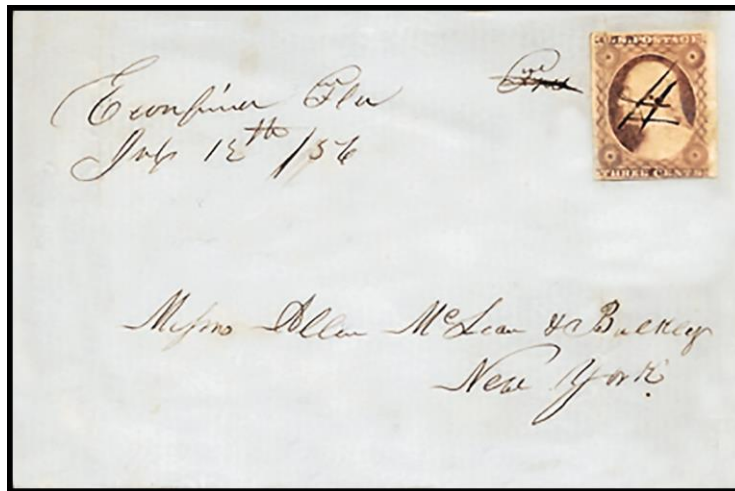 Econfina Fla
July 12th /56
U.S. POSTAGE
THREE CENTS
Messrs Allen McLean & Bulkley
New York